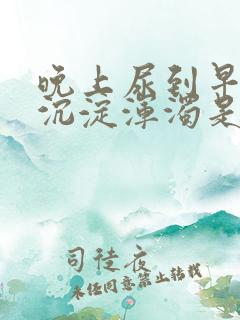 晚上尿到早
沉淀浑浊是
司徒夜
未经同意禁止转载